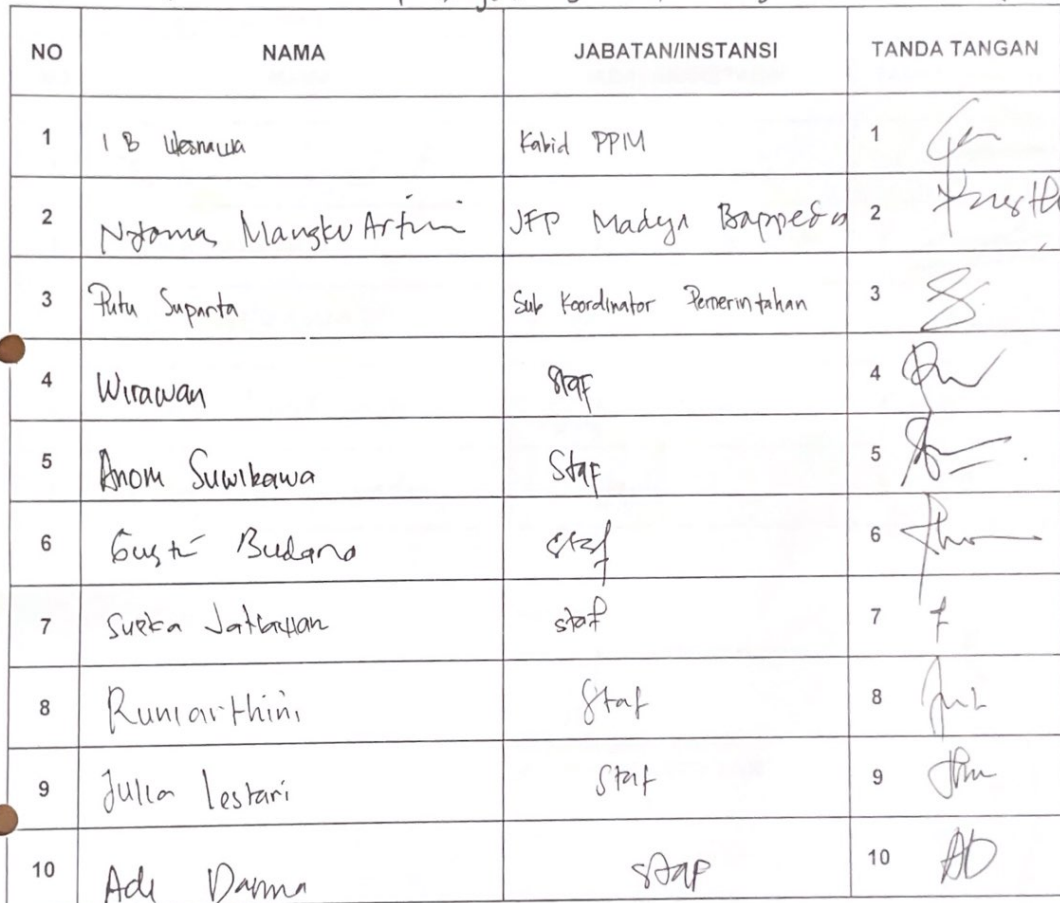 NO NAMA JABATAN/INSTANSI TANDA TANGAN
1 I B Wesnawa Kabid PPIM 1
2 Nyoman Mangku Artini JFP Madya Bappeda 2
3 Putu Suparta Sub Koordinator Pemerintahan 3
4 Wirawan Staf 4
5 Anom Suwikawa Staf 5
6 Gusti Budana staf 6
7 Sueka staf 7
8 Rumiarthini Staf 8
9 Julia Lestari Staf 9
10 Adi Darma stap 10